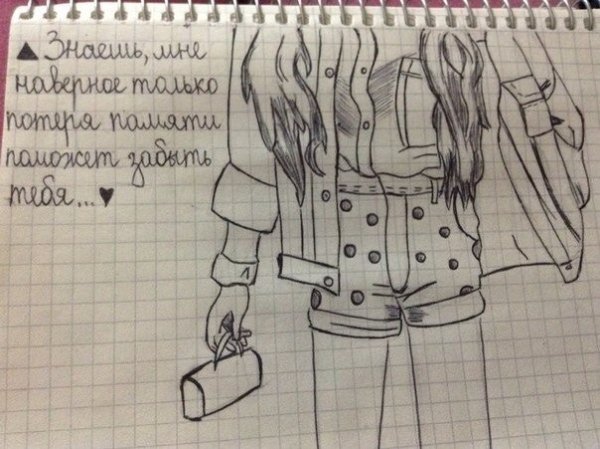 ▲ Знаешь, мне
наверное только
потеря памяти
поможет забыть
тебя...♥